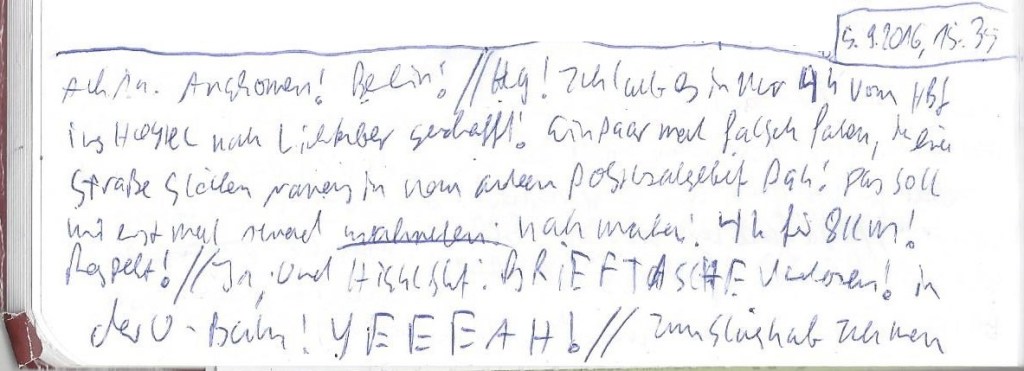 5.9.2016, 15.35
Ach ja. Angkomen! Berlin! // Hey! Ich hab es in nur 4h vom Hbf
ins Hostel nach Lichtenber geschafft! Ein paar mal falsch fahren, in einer
Straße gleichen namens in nem anderen Postleitzahlgebiet Das soll
mir erst mal jemand nachmachen! 4h für 8km!
Respekt! // Ja, und Highlight: BRIEFTASCHE verloren! in
der U-Bahn! YEEEEAH! // zum Glück hab